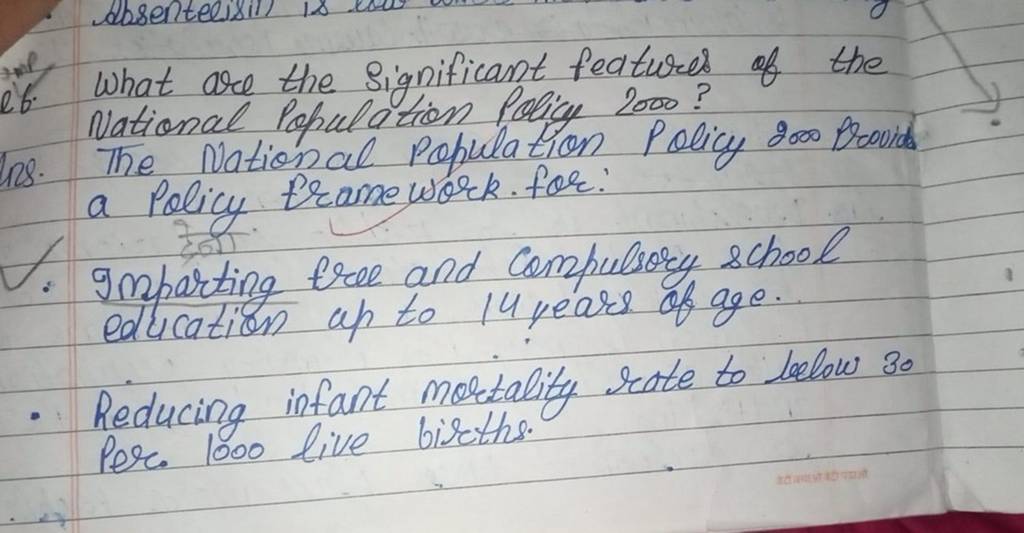 Absenteeism is
What are the Significant features of the
National Population Policy 2000?
Ans. The National Population Policy 2000 Provides
a Policy framework for:
• Imparting free and Compulsory school
education up to 14 years of age.
• Reducing infant mortality rate to below 30
Per 1000 live births.
बेटी बचाओ बेटी पढ़ाओ